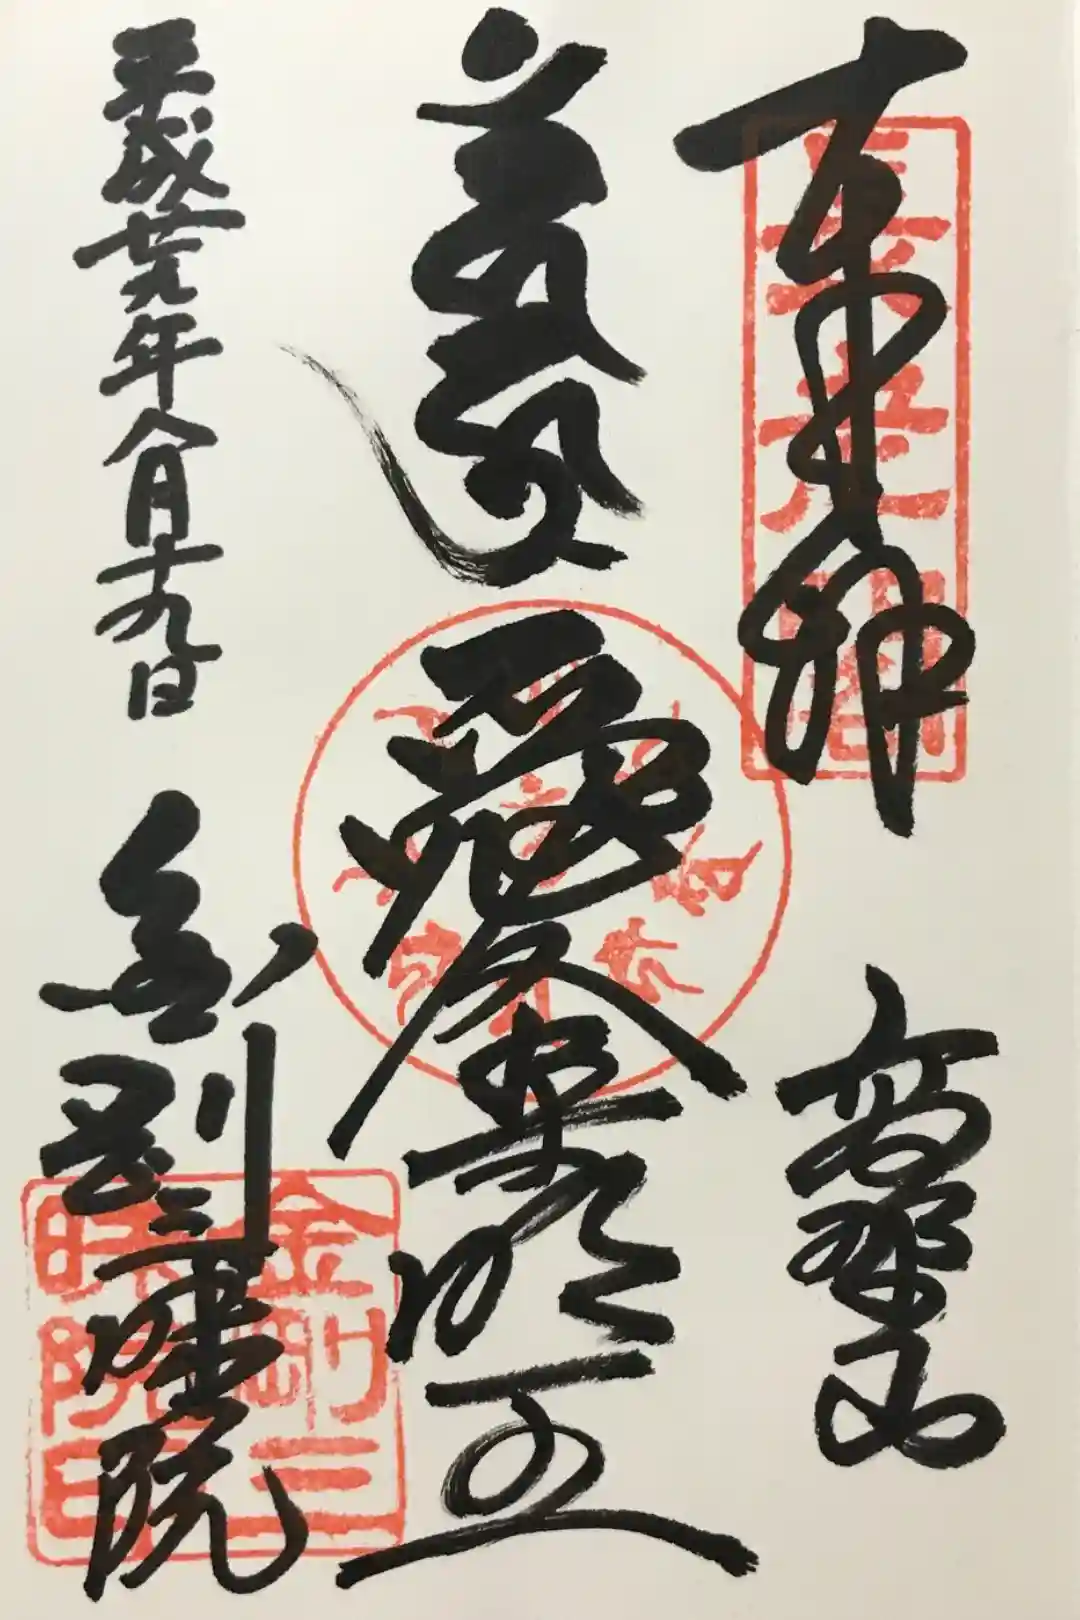 奉拝
高野山
愛染明王
平成廿九年八月十九日
金剛三昧院
金剛三
昧院印